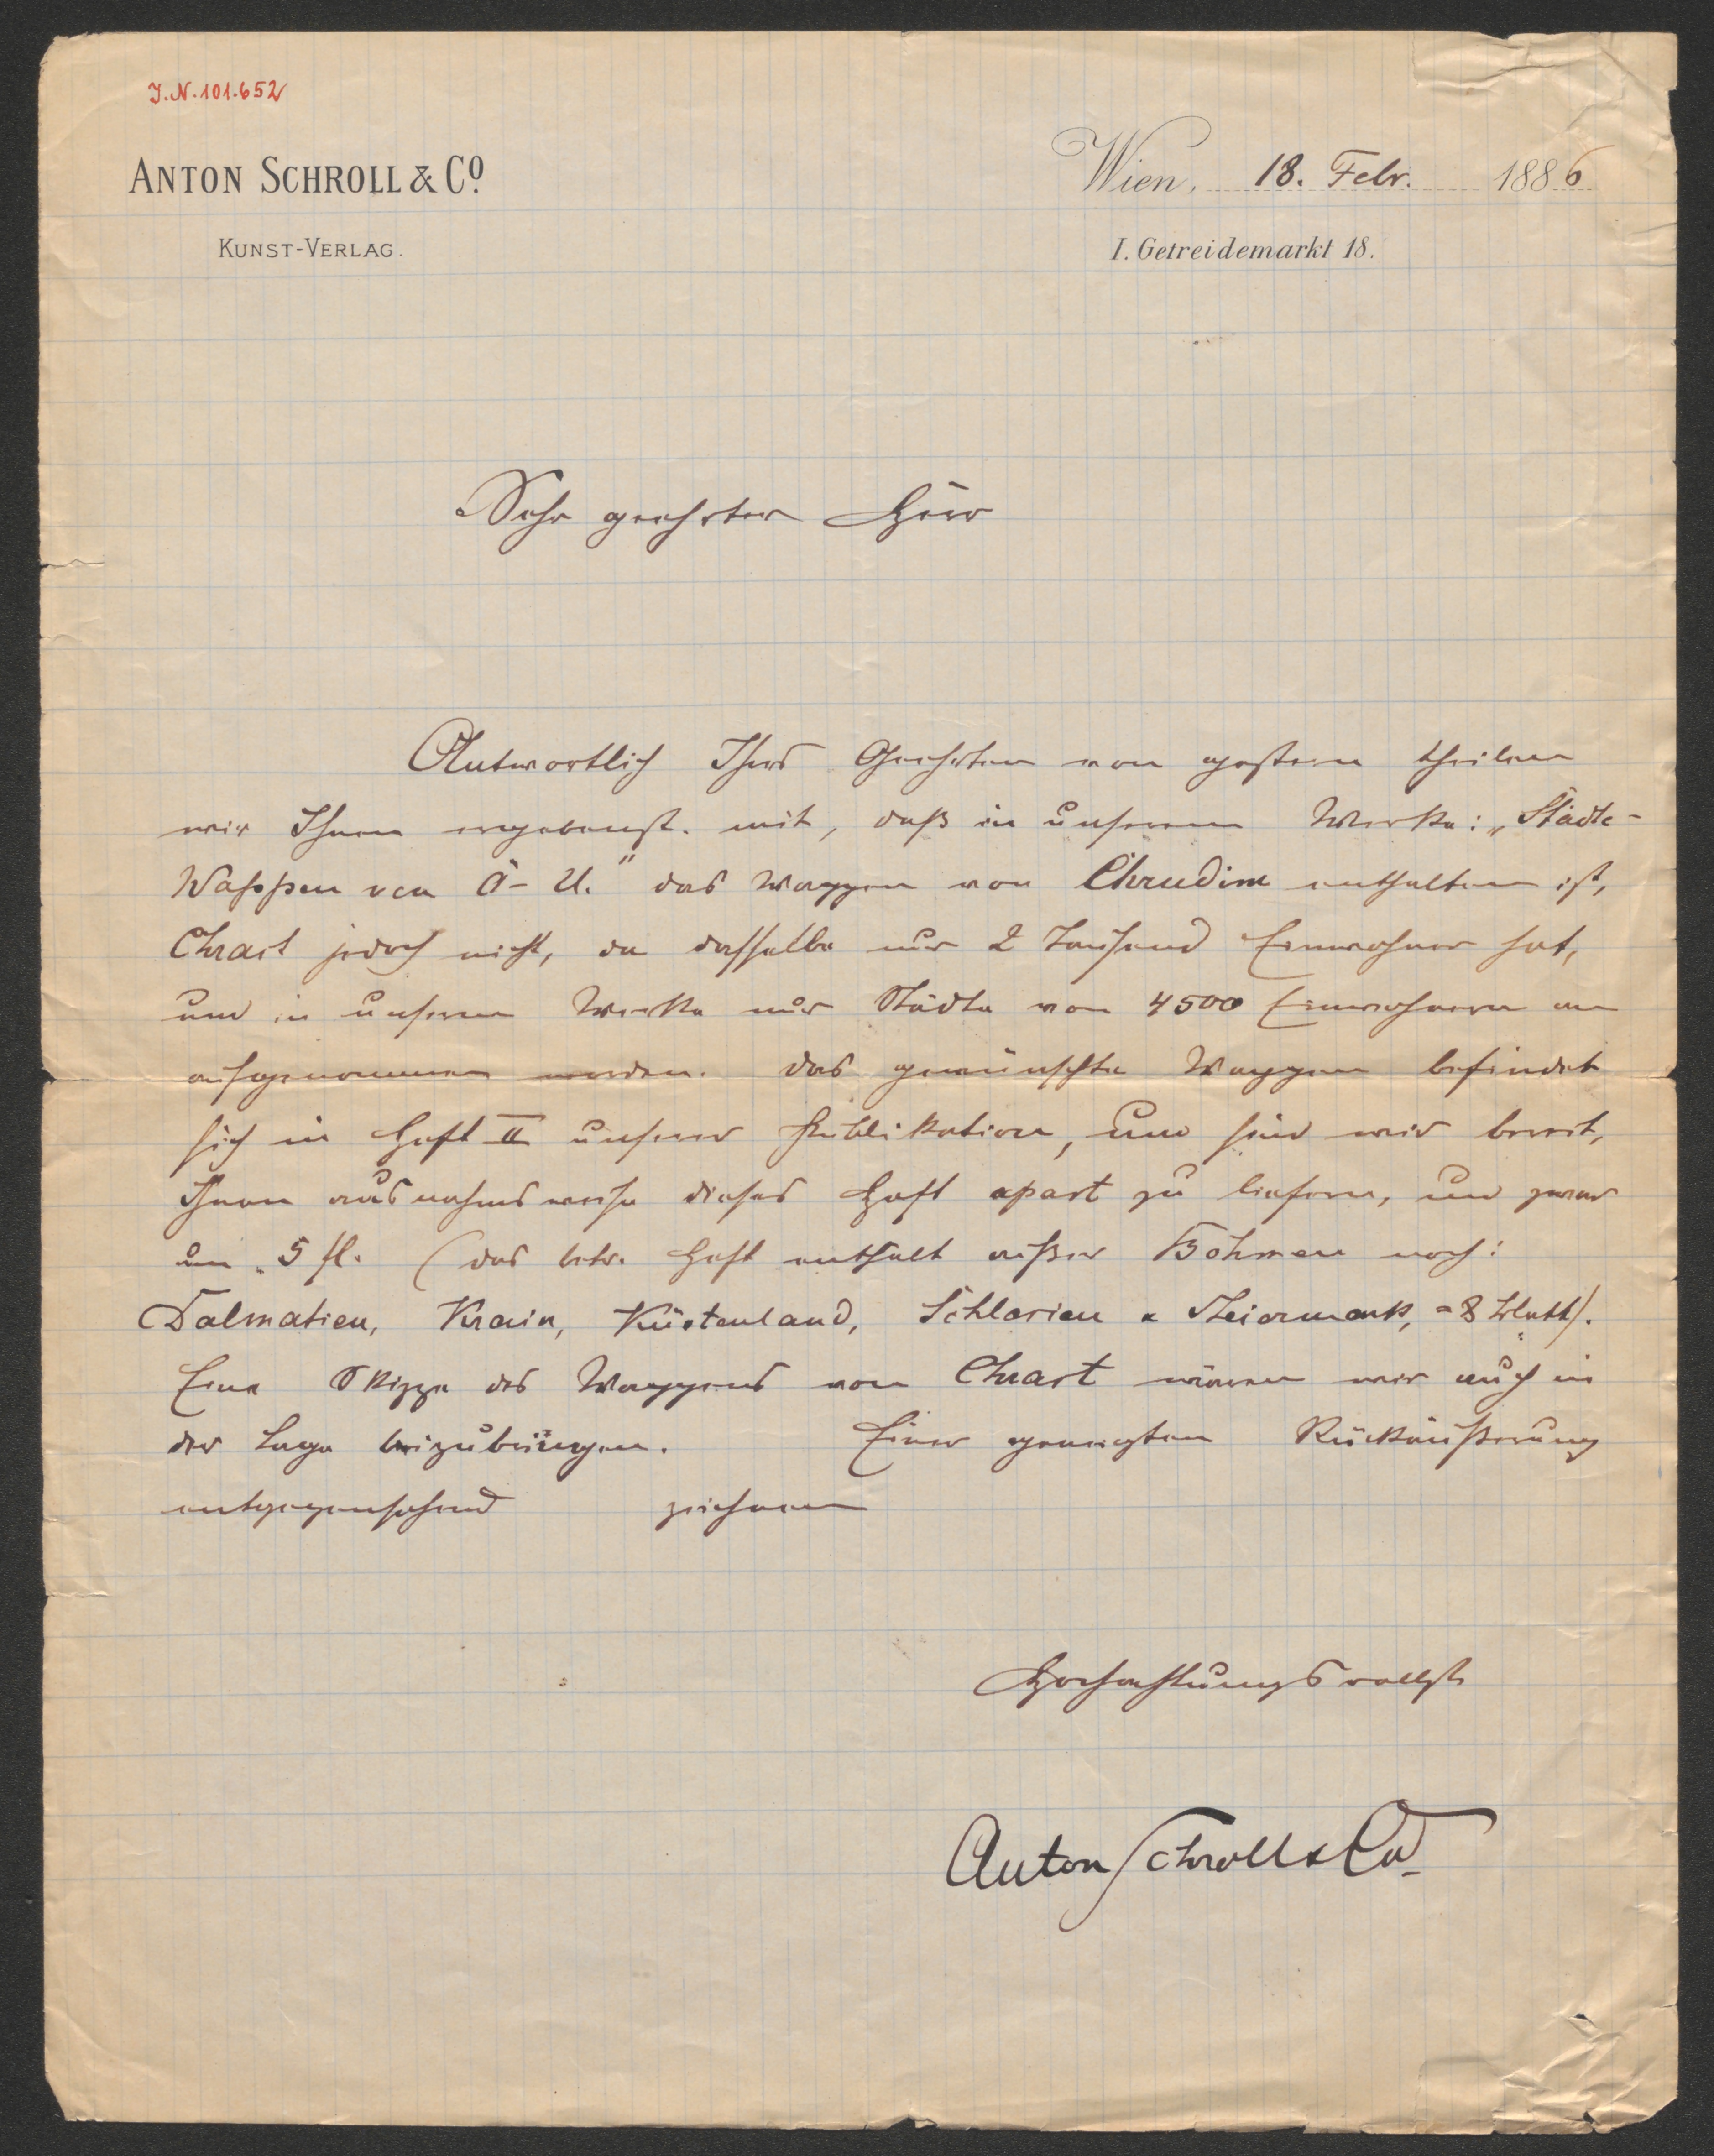 J.N. 101.652
ANTON SCHROLL & Cº
KUNST-VERLAG.
Wien, 18. Febr. 1886
I. Getreidemarkt 18.
Sehr geehrter Herr
Antwortlich Ihres Geehrten von gestern theilen
wir Ihnen ergebenst. mit, daß in unserem Werke: „Städte-
Wappen von Ö-U." das Wappen von Chrudim enthalten ist,
Chrast jedoch nicht, da dasselbe nur 2 Tausend Einwohner hat,
und in unserem Werke nur Städte von 4500 Einwohnern an
aufgenommen werden. Das gewünschte Wappen befindet
sich in Heft II unserer Publikation, und sind wir bereit,
Ihnen ausnahmsweise dieses Heft apart zu liefern, und zwar
um 5 fl. (das betr. Heft enthält außer Böhmen noch:
Dalmatien, Krain, Küstenland, Schlesien u Steiermark, = 8 Blatt).
Eine Skizze des Wappens von Chrast wären wir auch in
der Lage beizubringen. Einer geneigten Rückäußerung
entgegensehend zeichnen
Hochachtungsvollst
Anton Schroll & Co